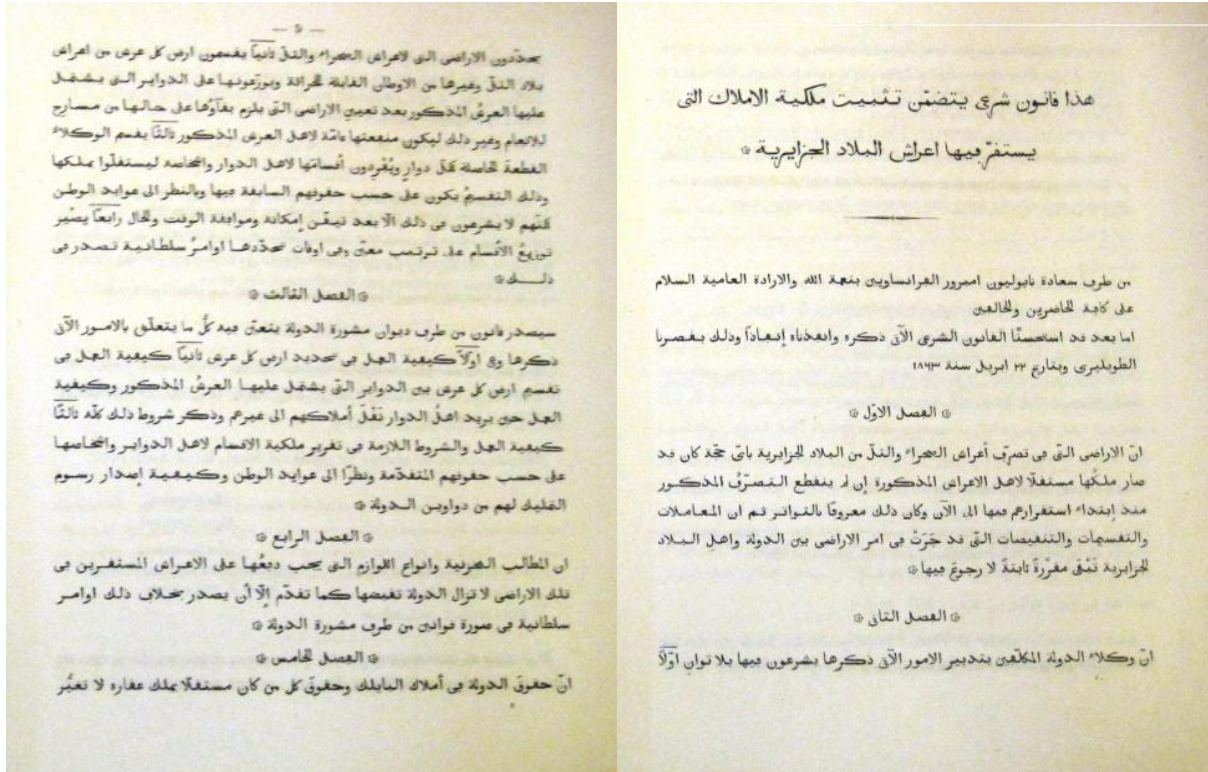 هذا قانون شرعي يتضمّن تثبيت ملكية الاملاك التى
يستقرّ فيها اعراش البلاد الجزايرية
من طرف سعادة نابوليون امبرور الفرانساويين بنعمة الله والارادة العامية السلام
على كافة الحاضرين والخالفين
اما بعد قد استحسنّا القانون الشرعى الآتى ذكره وانفذناه إنفاذاً وذلك بقصرنا
الطويليرى وبتاريخ ٢٢ ابريل سنة ١٨٦٣
الفصل الاوّل
انّ الاراضى التى فى تصرّف أعراش الصحراء والتلّ من البلاد الجزايرية باىّ حجّة كان قد
صار ملكُها مستقلًا لاهل الاعراش المذكورة إن لم ينقطع التصرّفُ المذكور
منذ إبتداء استقرارهم فيها الى الآن وكان ذلك معروفًا بالتواتر ثم ان المعاملات
والتقسيمات والتنقيصات التى قد جَرَتْ فى امر الاراضى بين الدولة واهل البلاد
الجزايرية تَبْقَى مقرّرةً ثابتةً لا رجوعَ فيها
الفصل الثانى
انّ وكلاء الدولة المكلّفين بتدبير الامور الآتى ذكرها يشرعون فيها بلا توانٍ اوّلاً
— 5 —
يحدّدون الاراضى التى لاعراش الصحراء والتلّ ثانياً يقسمون ارض كل عرش من اعراش
بلاد التلّ وغيرها من الاوطان القابلة للحراثة ويوزّعونها على الدواير التى يشتمل
عليها العرشُ المذكور بعد تعيين الاراضى التى يلزم بقاؤها على حالها من مسارح
للانعام وغير ذلك ليكون منفعتها عامّة لاهل العرش المذكور ثالثاً يقسم الوكلاء
القطعة الحاصلة لكلّ دوار ويُفْرِدون أقسامَها لاهل الدوار واشخاصه ليستقلّوا بملكها
وذلك التقسيمُ يكون على حسب حقوقهم السابقة فيها وبالنظر الى عوايد الوطن
لكنّهم لا يشرعون فى ذلك الّا بعد تيقّن إمكانه وموافقة الوقت والحال رابعاً يصير
توزيعُ الأقسام على ترتيب معيّن وفى اوقات تحدّدها اوامرُ سلطانية تصدر فى
ذلك
الفصل الثالث
سيصدر قانون من طرف ديوان مشورة الدولة يتعيّن فيه كلُّ ما يتعلّق بالامور الآتى
ذكرها وهى اوّلاً كيفية العمل فى تحديد ارض كل عرش ثانياً كيفية العمل فى
تقسيم ارض كل عرش بين الدواير التى يشتمل عليها العرشُ المذكور وكيفية
العمل حين يريد اهلُ الدوار نَقْلَ أملاكهم الى غيرهم وذكر شروط ذلك كلّه ثالثاً
كيفية العمل والشروط اللازمة فى تقرير ملكية الاقسام لاهل الدواير واشخاصها
على حسب حقوقهم المتقدّمة ونظرًا الى عوايد الوطن وكيفية إصدار رسوم
التمليك لهم من دواوين الدولة
الفصل الرابع
ان المطالب المخزنية وانواع اللوازم التى يجب دفعُها على الاعراش المستقرين فى
تلك الاراضى لا تزال الدولة تقبضها كما تقدّم إلّا أن يصدر بخلاف ذلك اوامر
سلطانية فى صورة قوانين من طرف مشورة الدولة
الفصل الخامس
انّ حقوقَ الدولة فى أملاك البايلك وحقوقَ كل من كان مستقلًا بملك عقاره لا تغيُّر